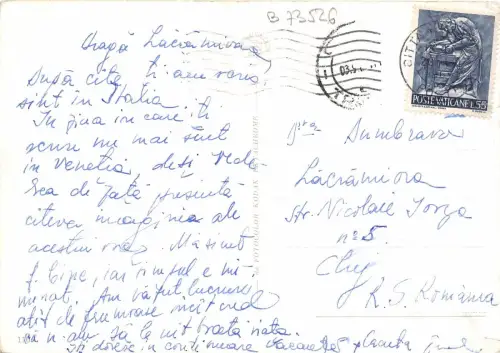 B 73526
Dragă Lăcrămioara,
După cîte ți-am scris
sînt în Italia.
În ziua în care îți
scriu nu mai sînt
în Veneția, deși vede-
rea de față prezintă
cîteva imagini ale
acestui oraș. Mă simt
f. bine, iar timpul e mi-
nunat. Am văzut lucruri
atît de frumoase încît cred
că n-am să le uit toată viața.
Îți doresc în continuare vacanță plăcută
POSTE VATICANE L.55
D-ra
Dumbrava
Lăcrămiora
str. Nicolaie Iorga
nº 5.
Cluj
R. S. România